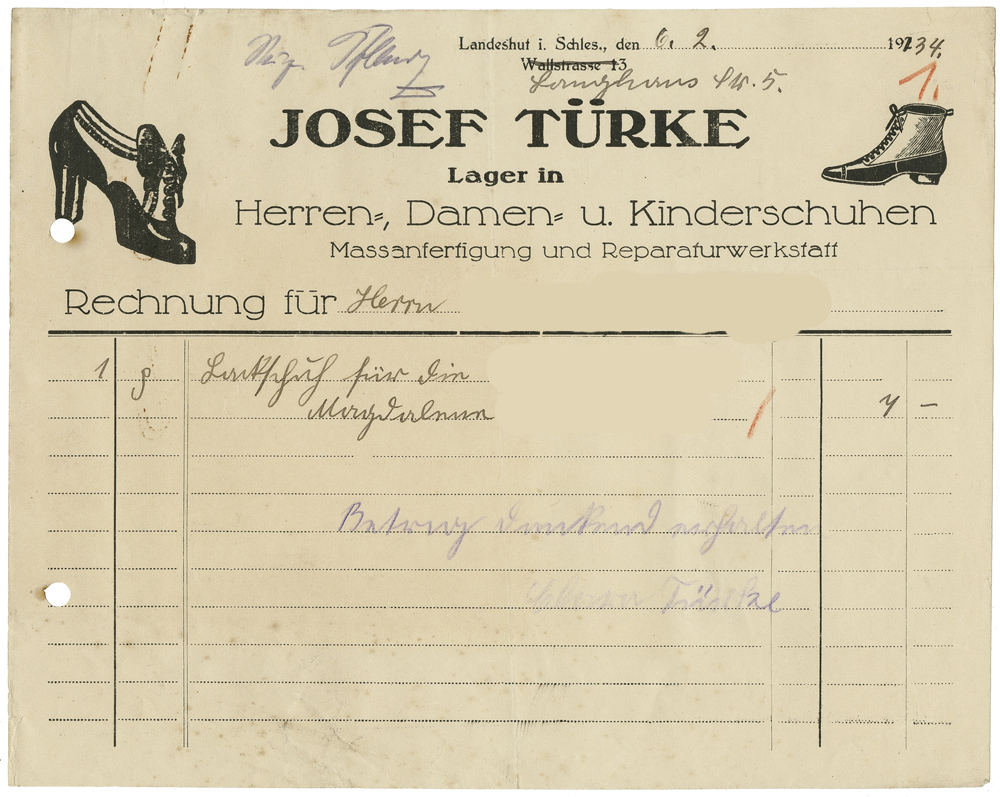 Landeshut i. Schles., den 6. 2. 1934.
Wallstrasse 13
Langhans Str. 5.
1.
JOSEF TÜRKE
Lager in
Herren-, Damen- u. Kinderschuhen
Massanfertigung und Reparaturwerkstatt
Rechnung für Herrn
1 p Lackschuh für die
Magdalene 4 –
Betrag dankend erhalten
Türke